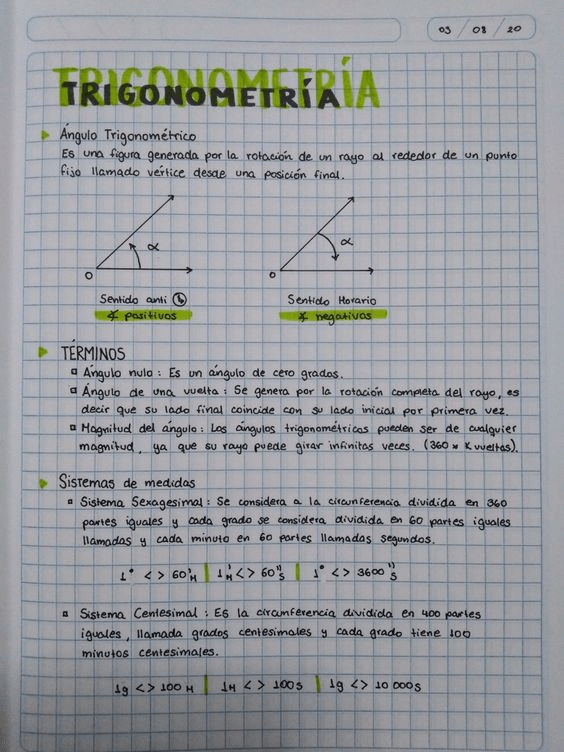 03 / 08 / 20
TRIGONOMETRÍA
TRIGONOMETRÍA
Ángulo Trigonométrico
Es una figura generada por la rotación de un rayo al rededor de un punto
fijo llamado vértice desde una posición final.
α
O
α
O
Sentido anti
Sentido Horario
∢ positivos
∢ negativos
TÉRMINOS
Ángulo nulo : Es un ángulo de cero grados.
Ángulo de una vuelta : Se genera por la rotación completa del rayo, es
decir que su lado final coincide con su lado inicial por primera vez.
Magnitud del ángulo : Los ángulos trigonométricos pueden ser de cualquier
magnitud, ya que su rayo puede girar infinitas veces. (360 × K vueltas).
Sistemas de medidas
Sistema Sexagesimal : Se considera a la circunferencia dividida en 360
partes iguales y cada grado se considera dividida en 60 partes iguales
llamadas y cada minuto en 60 partes llamadas segundos.
1° <> 60'M | 1'M <> 60''S | 1° <> 3600''S
Sistema Centesimal : Es la circunferencia dividida en 400 partes
iguales, llamada grados centesimales y cada grado tiene 100
minutos centesimales.
1g <> 100 M | 1M <> 100S | 1g <> 10 000S